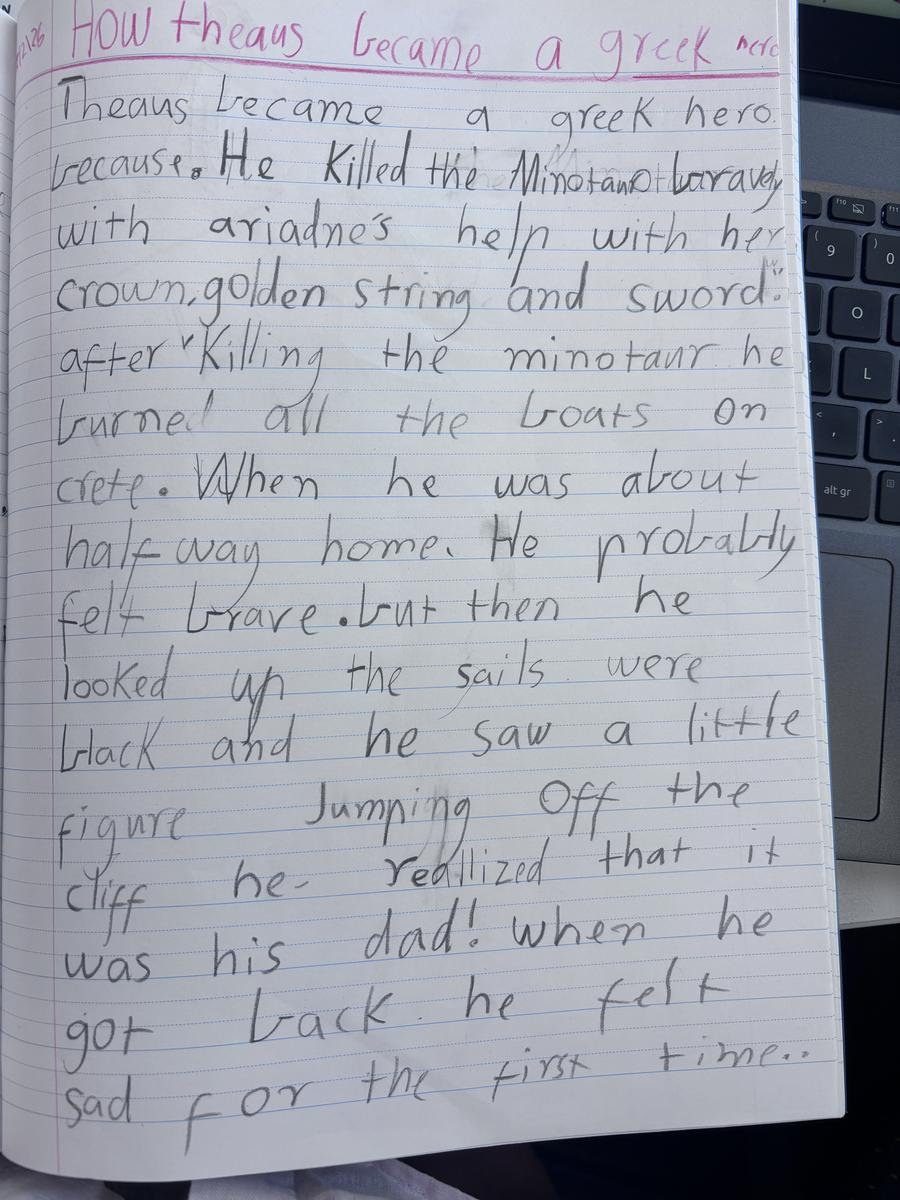 How theaus became a greek hero
Theaus became a greek hero.
because. He killed the Minotaur baravely
with ariadne's help with her
crown, golden string and sword.
after killing the minotaur he
burned all the boats on
crete. When he was about
half way home. He probably
felt brave. but then he
looked up the sails were
black and he saw a little
figure Jumping Off the
cliff he reallized that it
was his dad! when he
got back he felt
sad for the first time..
9
0
O
L
alt gr
f10
f11